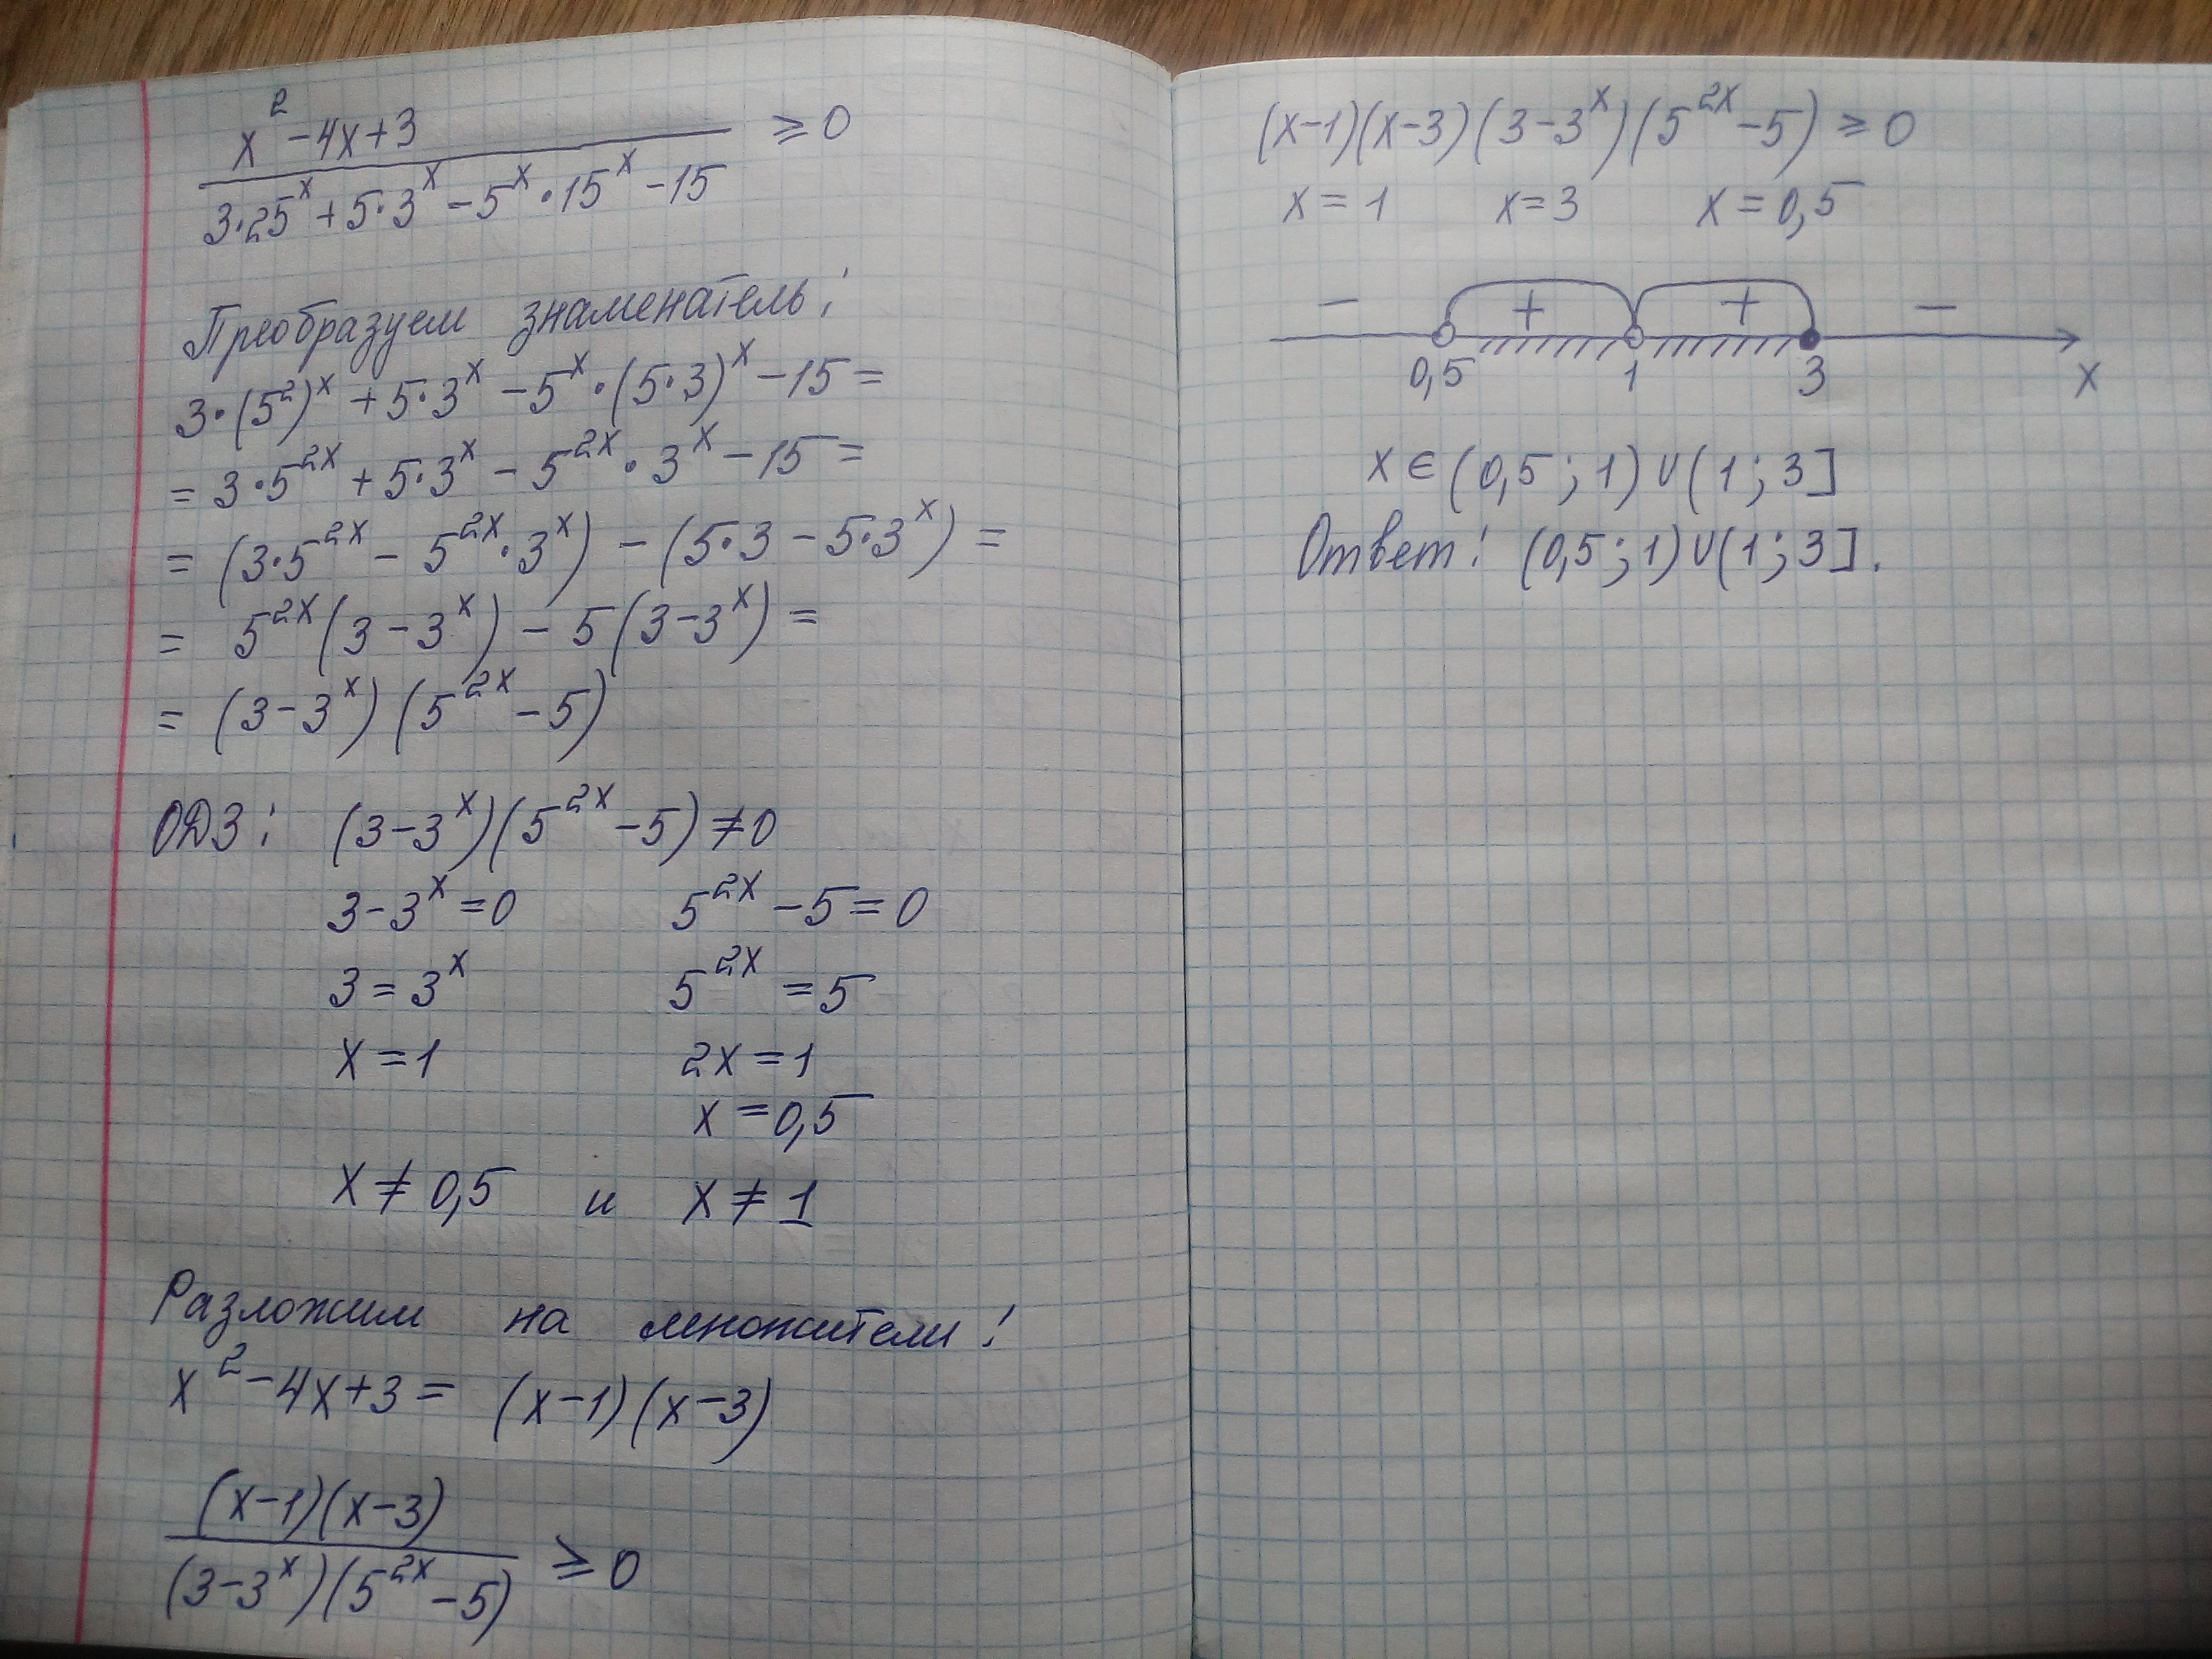 x² - 4x + 3
3·25ˣ + 5·3ˣ - 5ˣ·15ˣ - 15 ⩾ 0
Преобразуем знаменатель:
3·(5²)ˣ + 5·3ˣ - 5ˣ·(5·3)ˣ - 15 =
= 3·5²ˣ + 5·3ˣ - 5²ˣ·3ˣ - 15 =
= (3·5²ˣ - 5²ˣ·3ˣ) - (5·3 - 5·3ˣ) =
= 5²ˣ(3 - 3ˣ) - 5(3 - 3ˣ) =
= (3 - 3ˣ)(5²ˣ - 5)
ОДЗ: (3 - 3ˣ)(5²ˣ - 5) ≠ 0
3 - 3ˣ = 0 5²ˣ - 5 = 0
3 = 3ˣ 5²ˣ = 5
x = 1 2x = 1
x = 0,5
x ≠ 0,5 и x ≠ 1
Разложим на множители:
x² - 4x + 3 = (x-1)(x-3)
(x-1)(x-3)
(3-3ˣ)(5²ˣ-5) ⩾ 0
(x-1)(x-3)(3-3ˣ)(5²ˣ-5) ⩾ 0
x = 1 x = 3 x = 0,5
- + + -
0,5 1 3 x
x ∈ (0,5; 1) ∪ (1; 3]
Ответ: (0,5; 1) ∪ (1; 3].